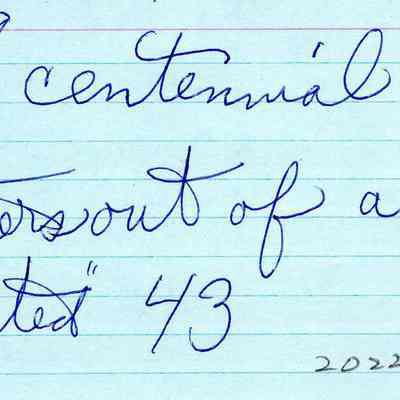 centennial
out of a
43
2022